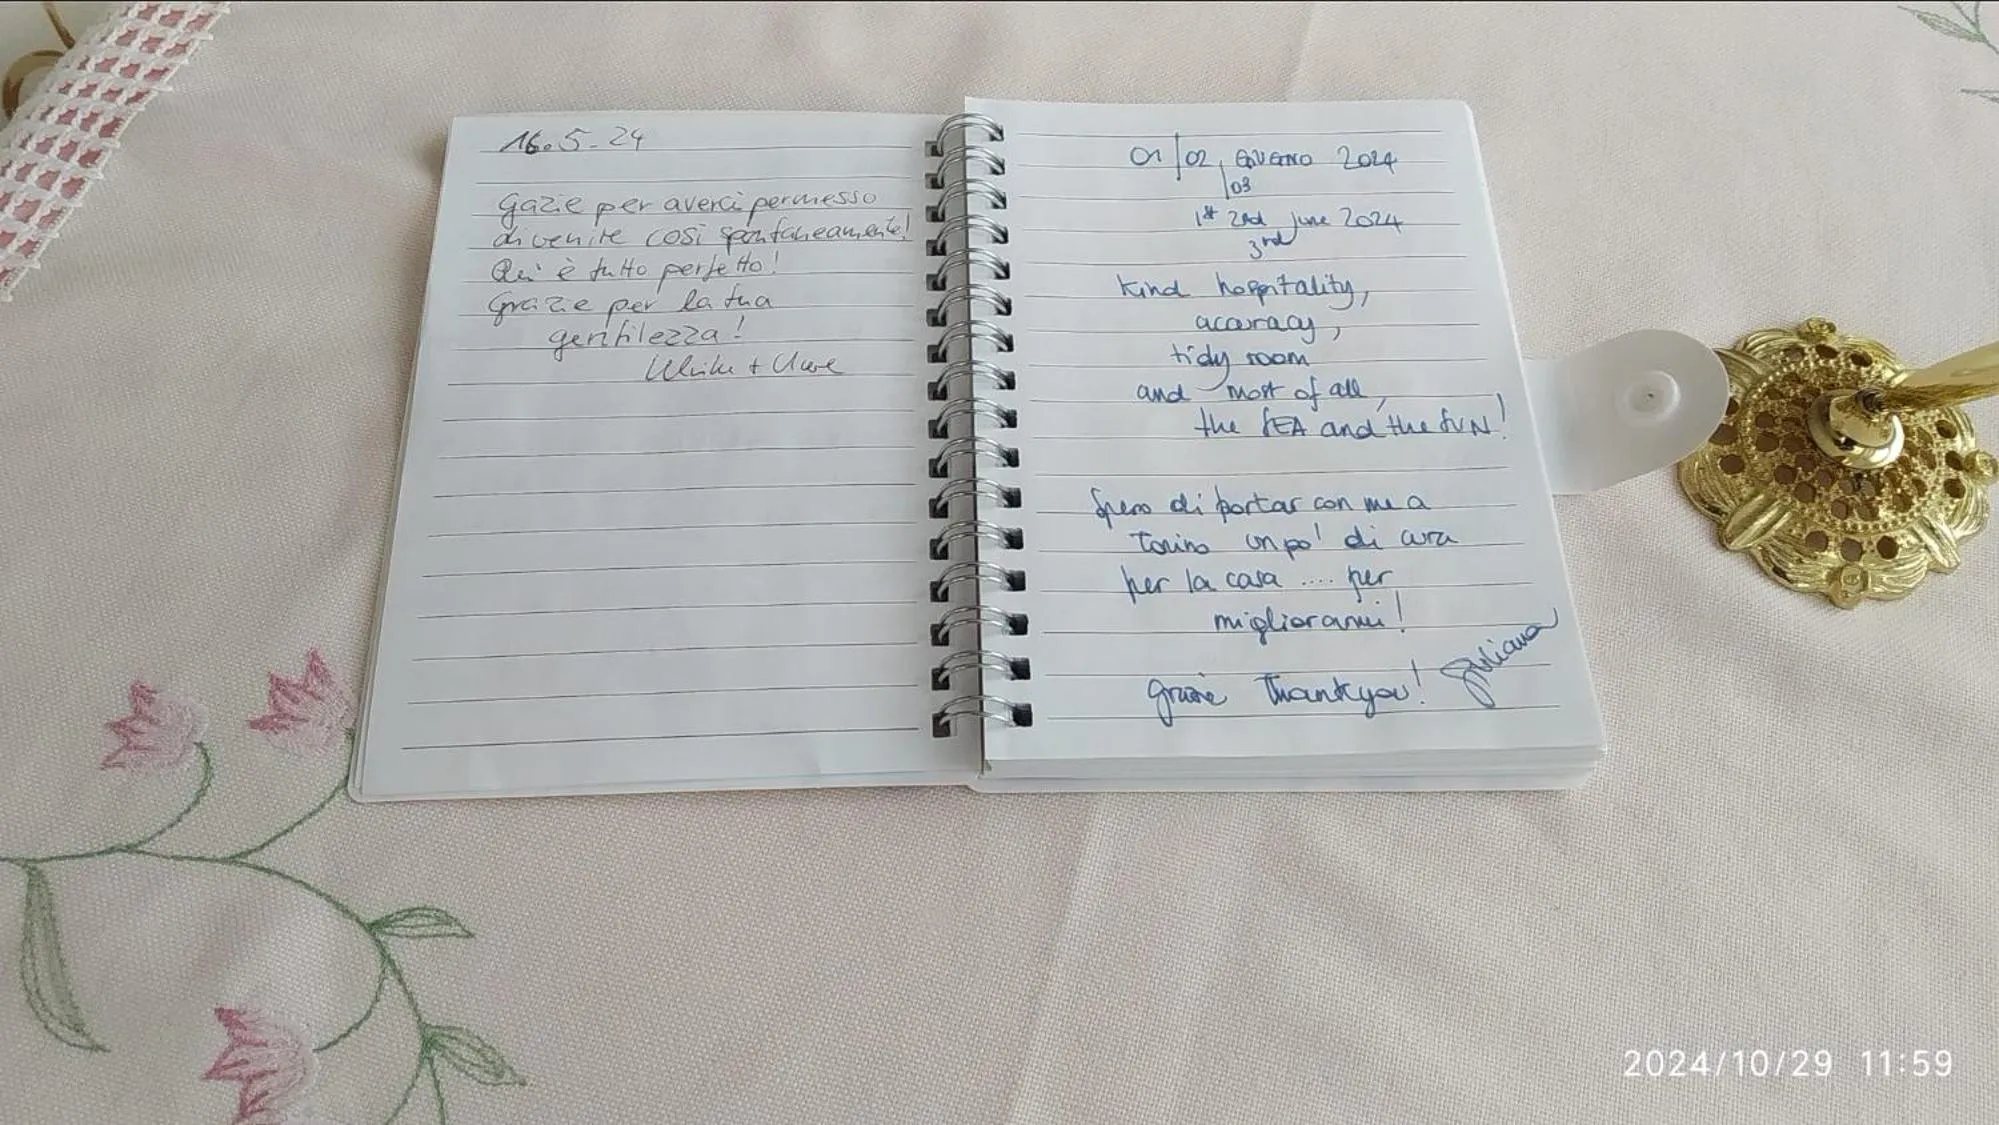 16.5-24
Gazie per averci permesso
di venire così spontaneamente!
Qui è tutto perfetto!
Grazie per la tua
gentilezza!
Ulrike + Uwe
01/02, GIUGNO 2024
/03
1st 2nd June 2024
3rd
Kind hospitality,
accuracy,
tidy room
and most of all,
the SEA and the SUN!
Spero di portar con me a
Torino un po' di cura
per la casa .... per
migliorarmi!
Giuliana
grazie Thank you!
2024/10/29 11:59